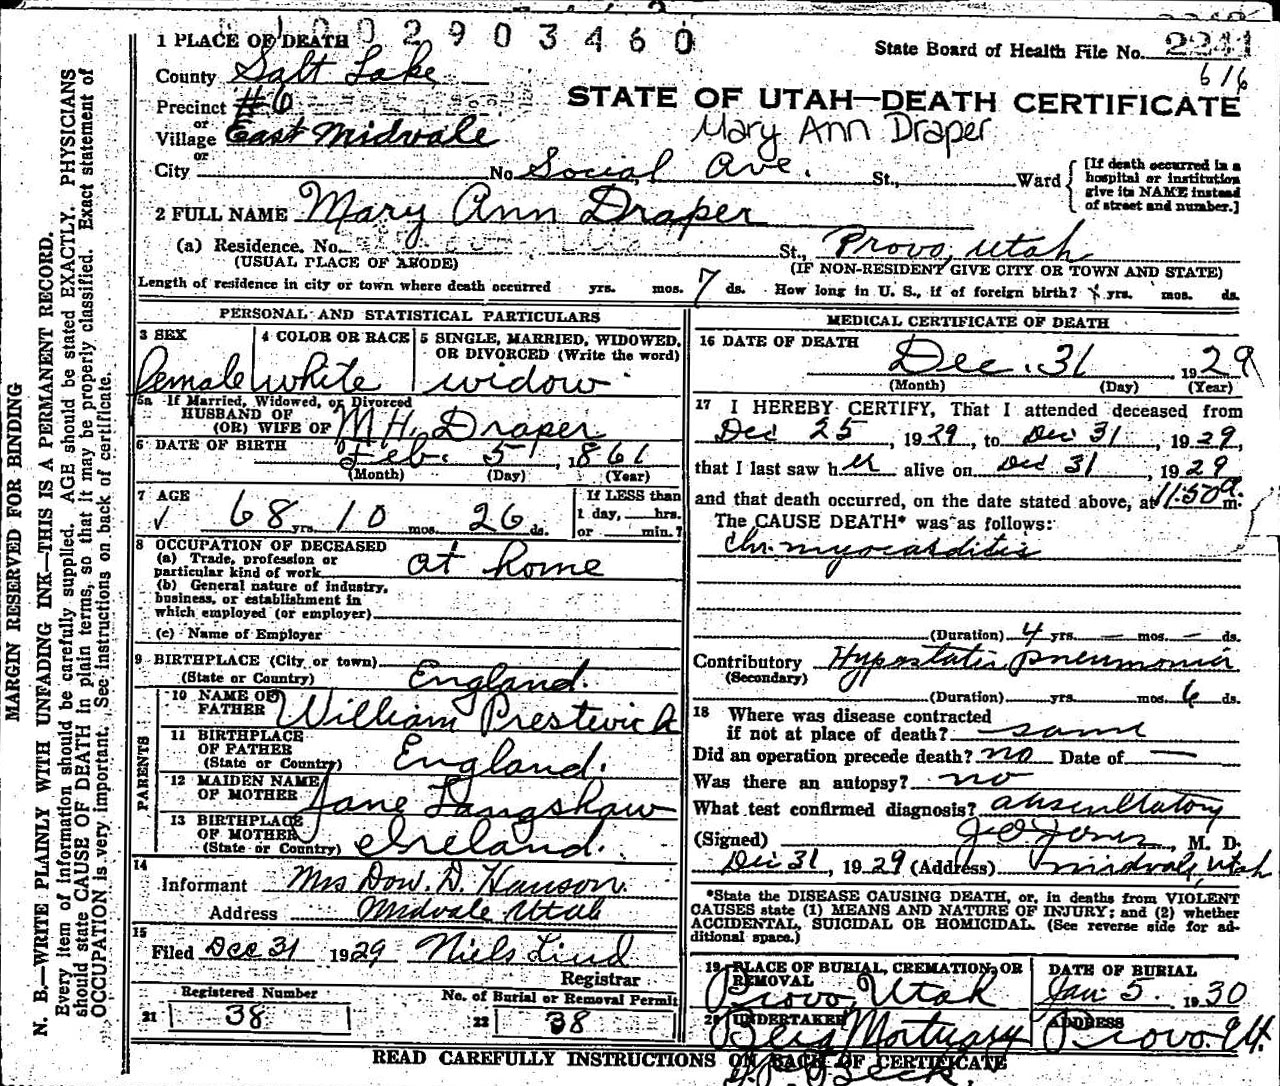 1002903460
1 PLACE OF DEATH
State Board of Health File No. 2241
County Salt Lake
616
Precinct #6
STATE OF UTAH—DEATH CERTIFICATE
or
Village East Midvale
Mary Ann Draper
or
City No Social Ave. St., Ward
[If death occurred in a
hospital or institution
give its NAME instead
of street and number.]
2 FULL NAME Mary Ann Draper
(a) Residence. No. St., Provo, Utah
(USUAL PLACE OF ABODE) (IF NON-RESIDENT GIVE CITY OR TOWN AND STATE)
Length of residence in city or town where death occurred yrs. mos. 7 ds. How long in U. S., if of foreign birth? yrs. mos. ds.
PERSONAL AND STATISTICAL PARTICULARS
3 SEX
female
4 COLOR OR RACE
white
5 SINGLE, MARRIED, WIDOWED,
OR DIVORCED (Write the word)
widow
5a If Married, Widowed, or Divorced
HUSBAND OF
(OR) WIFE OF M.H. Draper
6 DATE OF BIRTH Feb. 5, 1861
(Month) (Day) (Year)
7 AGE
68 yrs. 10 mos. 26 ds.
If LESS than
1 day, hrs.
or min.?
8 OCCUPATION OF DECEASED
(a) Trade, profession or
particular kind of work at home
(b) General nature of industry,
business, or establishment in
which employed (or employer)
(c) Name of Employer
9 BIRTHPLACE (City or town)
(State or Country) England.
PARENTS
10 NAME OF
FATHER William Prestwich
11 BIRTHPLACE
OF FATHER
(State or Country) England.
12 MAIDEN NAME
OF MOTHER Jane Langshaw
13 BIRTHPLACE
OF MOTHER
(State or Country) Ireland.
14
Informant Mrs Dow. D. Hanson.
Address Midvale Utah
15
Filed Dec 31 1929 Niels Lind
Registrar
Registered Number
21 38
No. of Burial or Removal Permit
22 38
MEDICAL CERTIFICATE OF DEATH
16 DATE OF DEATH
Dec. 31 1929
(Month) (Day) (Year)
17 I HEREBY CERTIFY, That I attended deceased from
Dec 25, 1929, to Dec 31, 1929,
that I last saw her alive on Dec 31, 1929
and that death occurred, on the date stated above, at 11:50 a. m.
The CAUSE DEATH* was as follows:
Chr. myocarditis
(Duration) 4 yrs. — mos. — ds.
Contributory Hypostatic pneumonia
(Secondary)
(Duration) yrs. mos. 6 ds.
18 Where was disease contracted
if not at place of death? same
Did an operation precede death? no Date of —
Was there an autopsy? no
What test confirmed diagnosis? auscultatory
(Signed) J O Jones, M. D.
Dec 31, 1929 (Address) Midvale, Utah
*State the DISEASE CAUSING DEATH, or, in deaths from VIOLENT
CAUSES state (1) MEANS AND NATURE OF INJURY; and (2) whether
ACCIDENTAL, SUICIDAL OR HOMICIDAL. (See reverse side for ad-
ditional space.)
19 PLACE OF BURIAL, CREMATION, OR
REMOVAL
Provo, Utah
DATE OF BURIAL
Jan. 5. 1930
20 UNDERTAKER
Berg Mortuary
Beck.
ADDRESS
Provo. Ut.
READ CAREFULLY INSTRUCTIONS ON BACK OF CERTIFICATE
MARGIN RESERVED FOR BINDING
N. B.—WRITE PLAINLY WITH UNFADING INK—THIS IS A PERMANENT RECORD.
Every item of information should be carefully supplied. AGE should be stated EXACTLY. PHYSICIANS
should state CAUSE OF DEATH in plain terms, so that it may be properly classified. Exact statement of
OCCUPATION is very important. See instructions on back of certificate.